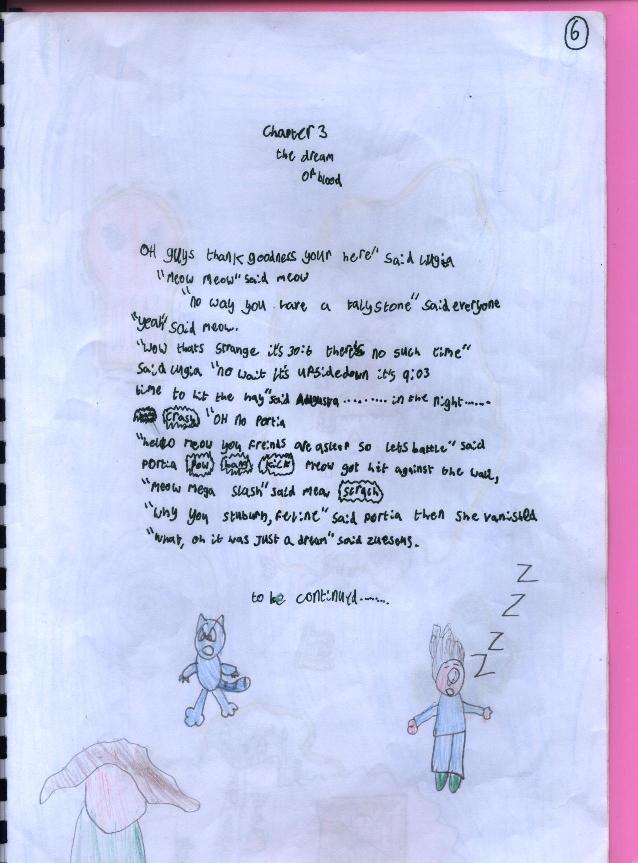 6
Chapter 3
the dream
of blood
OH guys thank goodness your here" said lugia
"Meow meow" said meow
"no way you have a talystone" said everyone
"yeah" said meow.
"Wow thats strange it's 30:6 there's no such time"
said lugia "no wait it's upsidedown it's 9:03
time to hit the hay" said ......... in the night......
Crash "OH no Portia
"hello meow you freinds are asleep so lets battle" said
Portia Pow bang kick meow got hit against the wall,
"Meow Mega slash" said meow
"why you stuburn, feline" said Portia then she vanished
"what, oh it was just a dream" said zuesons.
to be continued.......
Z
Z
Z
Z